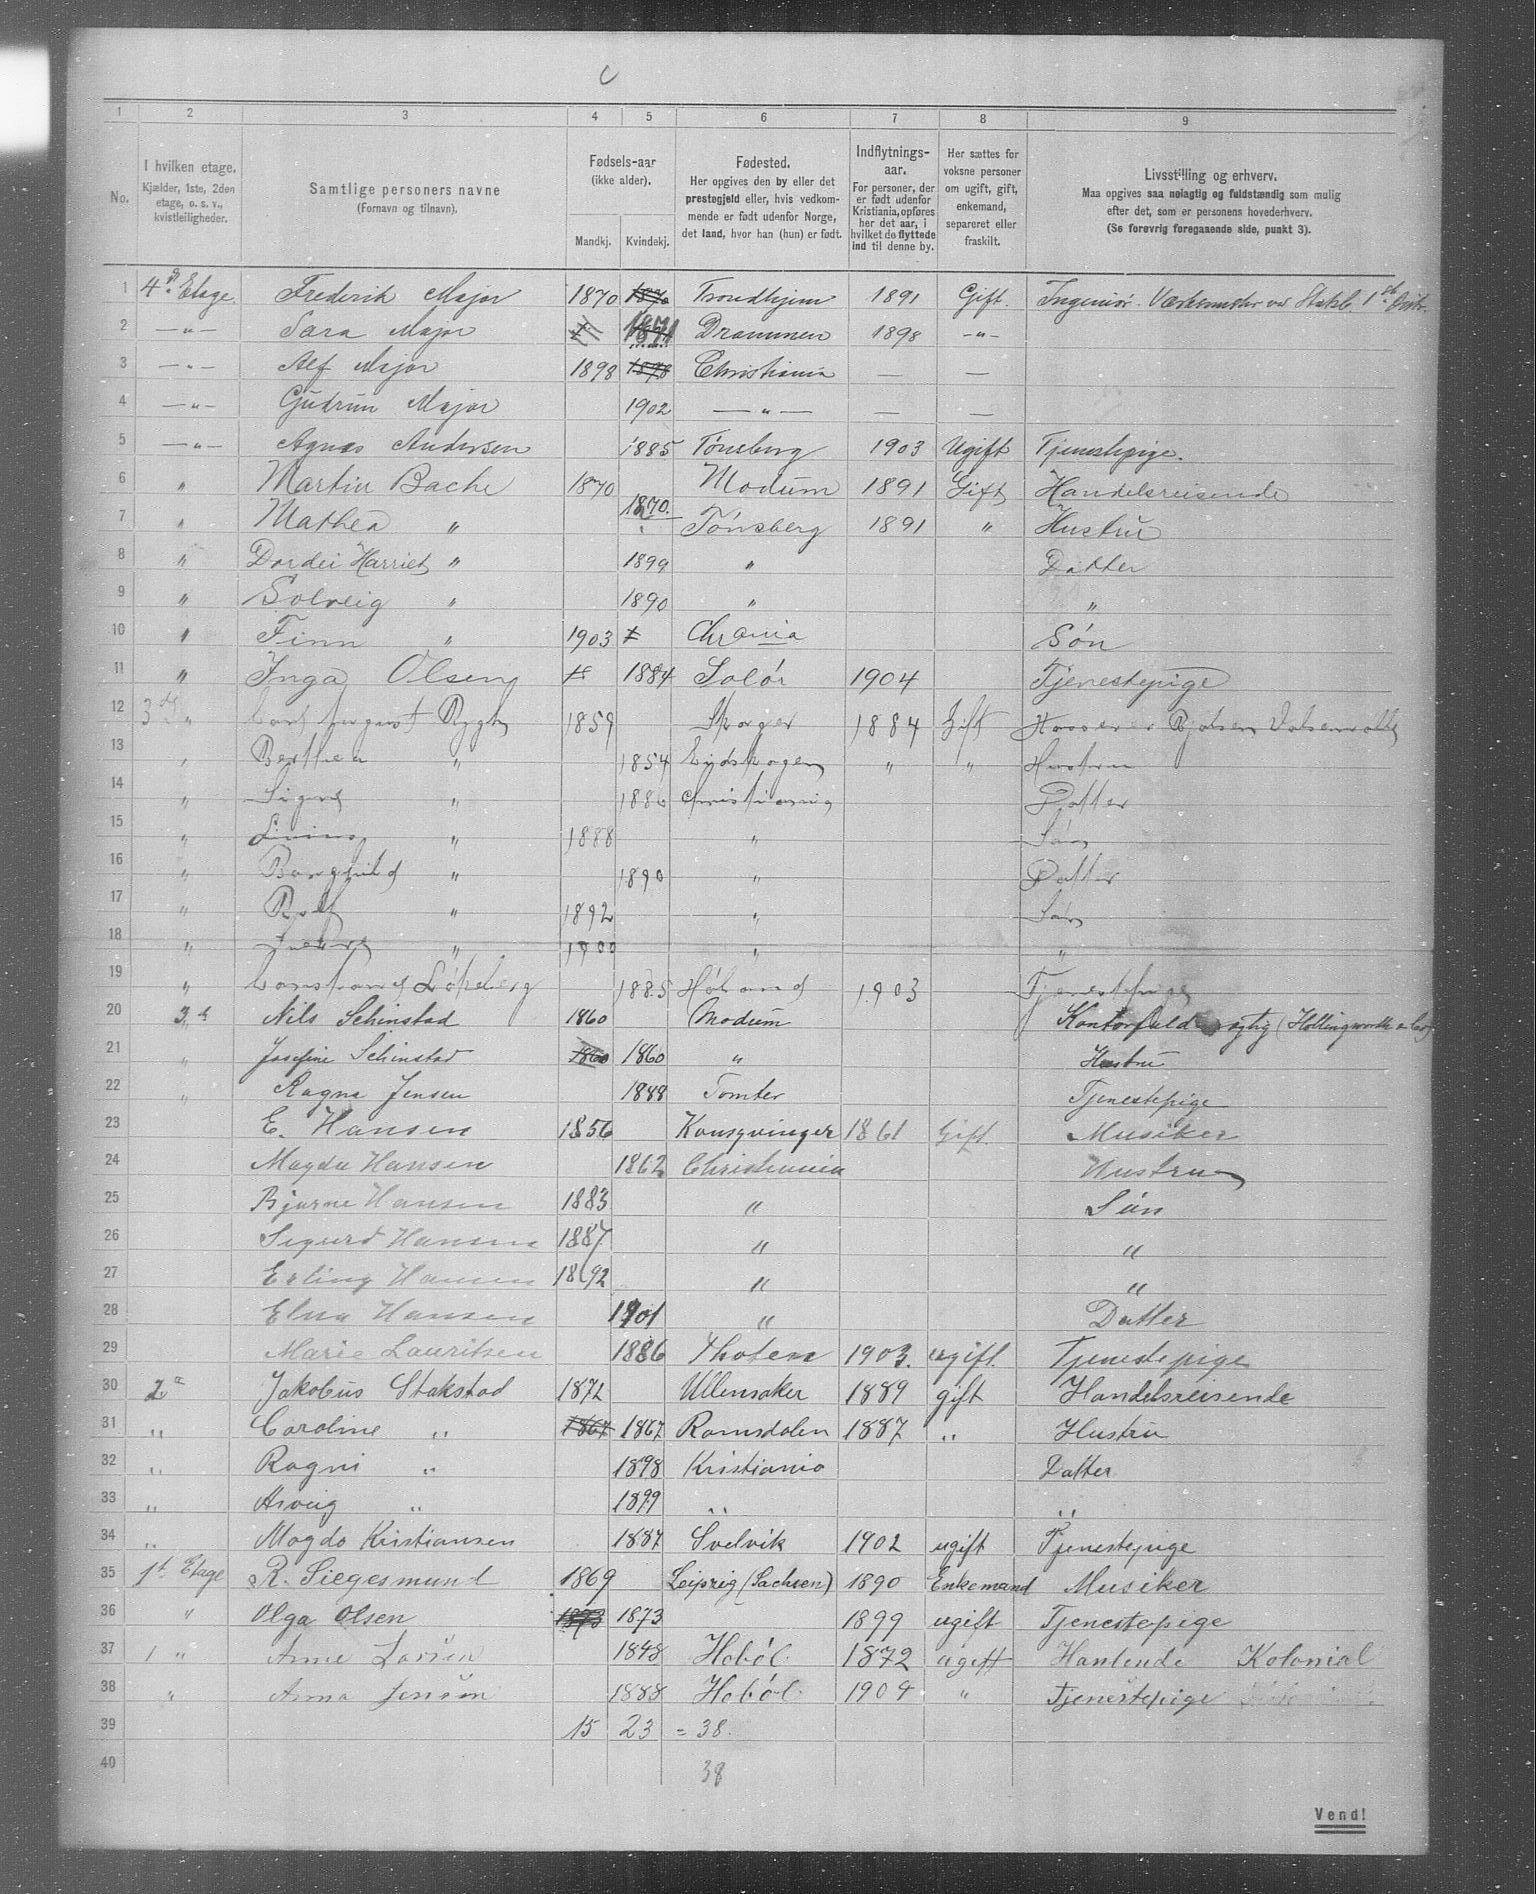 C
1 2 3 4 5 6 7 8 9
No.
I hvilken etage.
Kjælder, 1ste, 2den
etage, o. s. v.,
kvistleiligheder.
Samtlige personers navne
(Fornavn og tilnavn).
Fødsels-aar
(ikke alder).
Mandkj. Kvindekj.
Fødested.
Her opgives den by eller det
prestegjeld eller, hvis vedkom-
mende er født udenfor Norge,
det land, hvor han (hun) er født.
Indflytnings-
aar.
For personer, der
er født udenfor
Kristiania, opføres
her det aar, i
hvilket de flyttede
ind til denne by.
Her sættes for
voksne personer
om ugift, gift,
enkemand,
separeret eller
fraskilt.
Livsstilling og erhverv.
Maa opgives saa nøiagtig og fuldstændig som mulig
efter det, som er personens hovederhverv.
(Se forøvrig foregaaende side, punkt 3).
1 4de Etage Frederik Major 1870 1870 Trondhjem 1891 Gift. Ingeniør
2 —"— Sara Major 1871 Drammen 1898 —"—
3 —"— Alf Major 1898 1898 Christiania — —
4 —"— Gudrun Major 1902 —"— — —
5 —"— Agnes Andersen 1885 Tønsberg 1903 Ugift Tjenestepige.
6 " Martin Bache 1870 Modum 1891 Gift Handelsreisende
7 " Mathea " 1870. Tønsberg 1891 " Hustru
8 " Dordei Harriet " 1899 " Datter
9 " Solveig " 1890 " "
10 " Finn " 1903 Chrania Søn
11 " Inga Olsen 1884 Solør 1904 Tjenestepige
12 3de " Carl August Rygh 1859 1884 Gift
13 " Berthea " 1854 Eydskogen " " Hustru
14 " Signe " 1886 Christiania Datter
15 " " 1888 " Søn
16 " Borghild " 1890 " Datter
17 " Rolf " 1892 " Søn
18 " " 1900 " "
19 " Løkeberg 1885 Høland 1903 Tjenestepige
20 3d Nils Schinstad 1860 Modum (Hollingworth
21 " Josefine Schinstad 1860 1860 " Hustru
22 " Ragna Jensen 1888 Tomter Tjenestepige
23 E. Hansen 1856 Kongsvinger 1861 Gift Musiker
24 Magda Hansen 1862 Christiania Hustru
25 Bjarne Hansen 1883 " Søn
26 Sigurd Hansen 1887 " "
27 Erling Hansen 1892 " "
28 Elna Hansen 1901 " Datter
29 Marie Lauritsen 1886 Thoten 1903. ugift. Tjenestepige
30 2 Jakobus Stakstad 1872 Ullensaker 1889 gift Handelsreisende
31 " Caroline " 1867 1867 Romsdalen 1887 " Hustru
32 " Ragni " 1898 Kristiania Datter
33 " Asveig " 1899 " "
34 " Magda Kristiansen 1887 Svelvik 1902 ugift Tjenestepige
35 1st Etage R. Siegesmund 1869 Leipzig (Sachsen) 1890 Enkemand Musiker
36 " Olga Olsen 1873 1873 1899 ugift Tjenestepige
37 1 " Anne Larsen 1848 Hobøl. 1872 ugift Hanlende Kolonial
38 " Anna Jensen 1888 Hobøl. 1904 " Tjenestepige
39 15 23 = 38.
40 38
Vend!